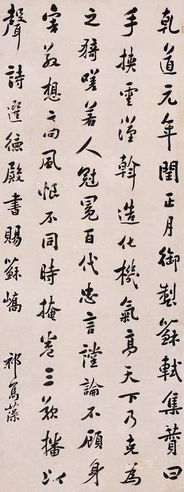 乾道元年閏正月御製蘇軾集贊曰
手抉雲漢斡造化機氣高天下乃克為
之猗嗟若人冠冕百代忠言讜論不顧身
害敬想高風恨不同時掩卷三歎播以
聲詩選德殿書賜蘇嶠
祁寯藻